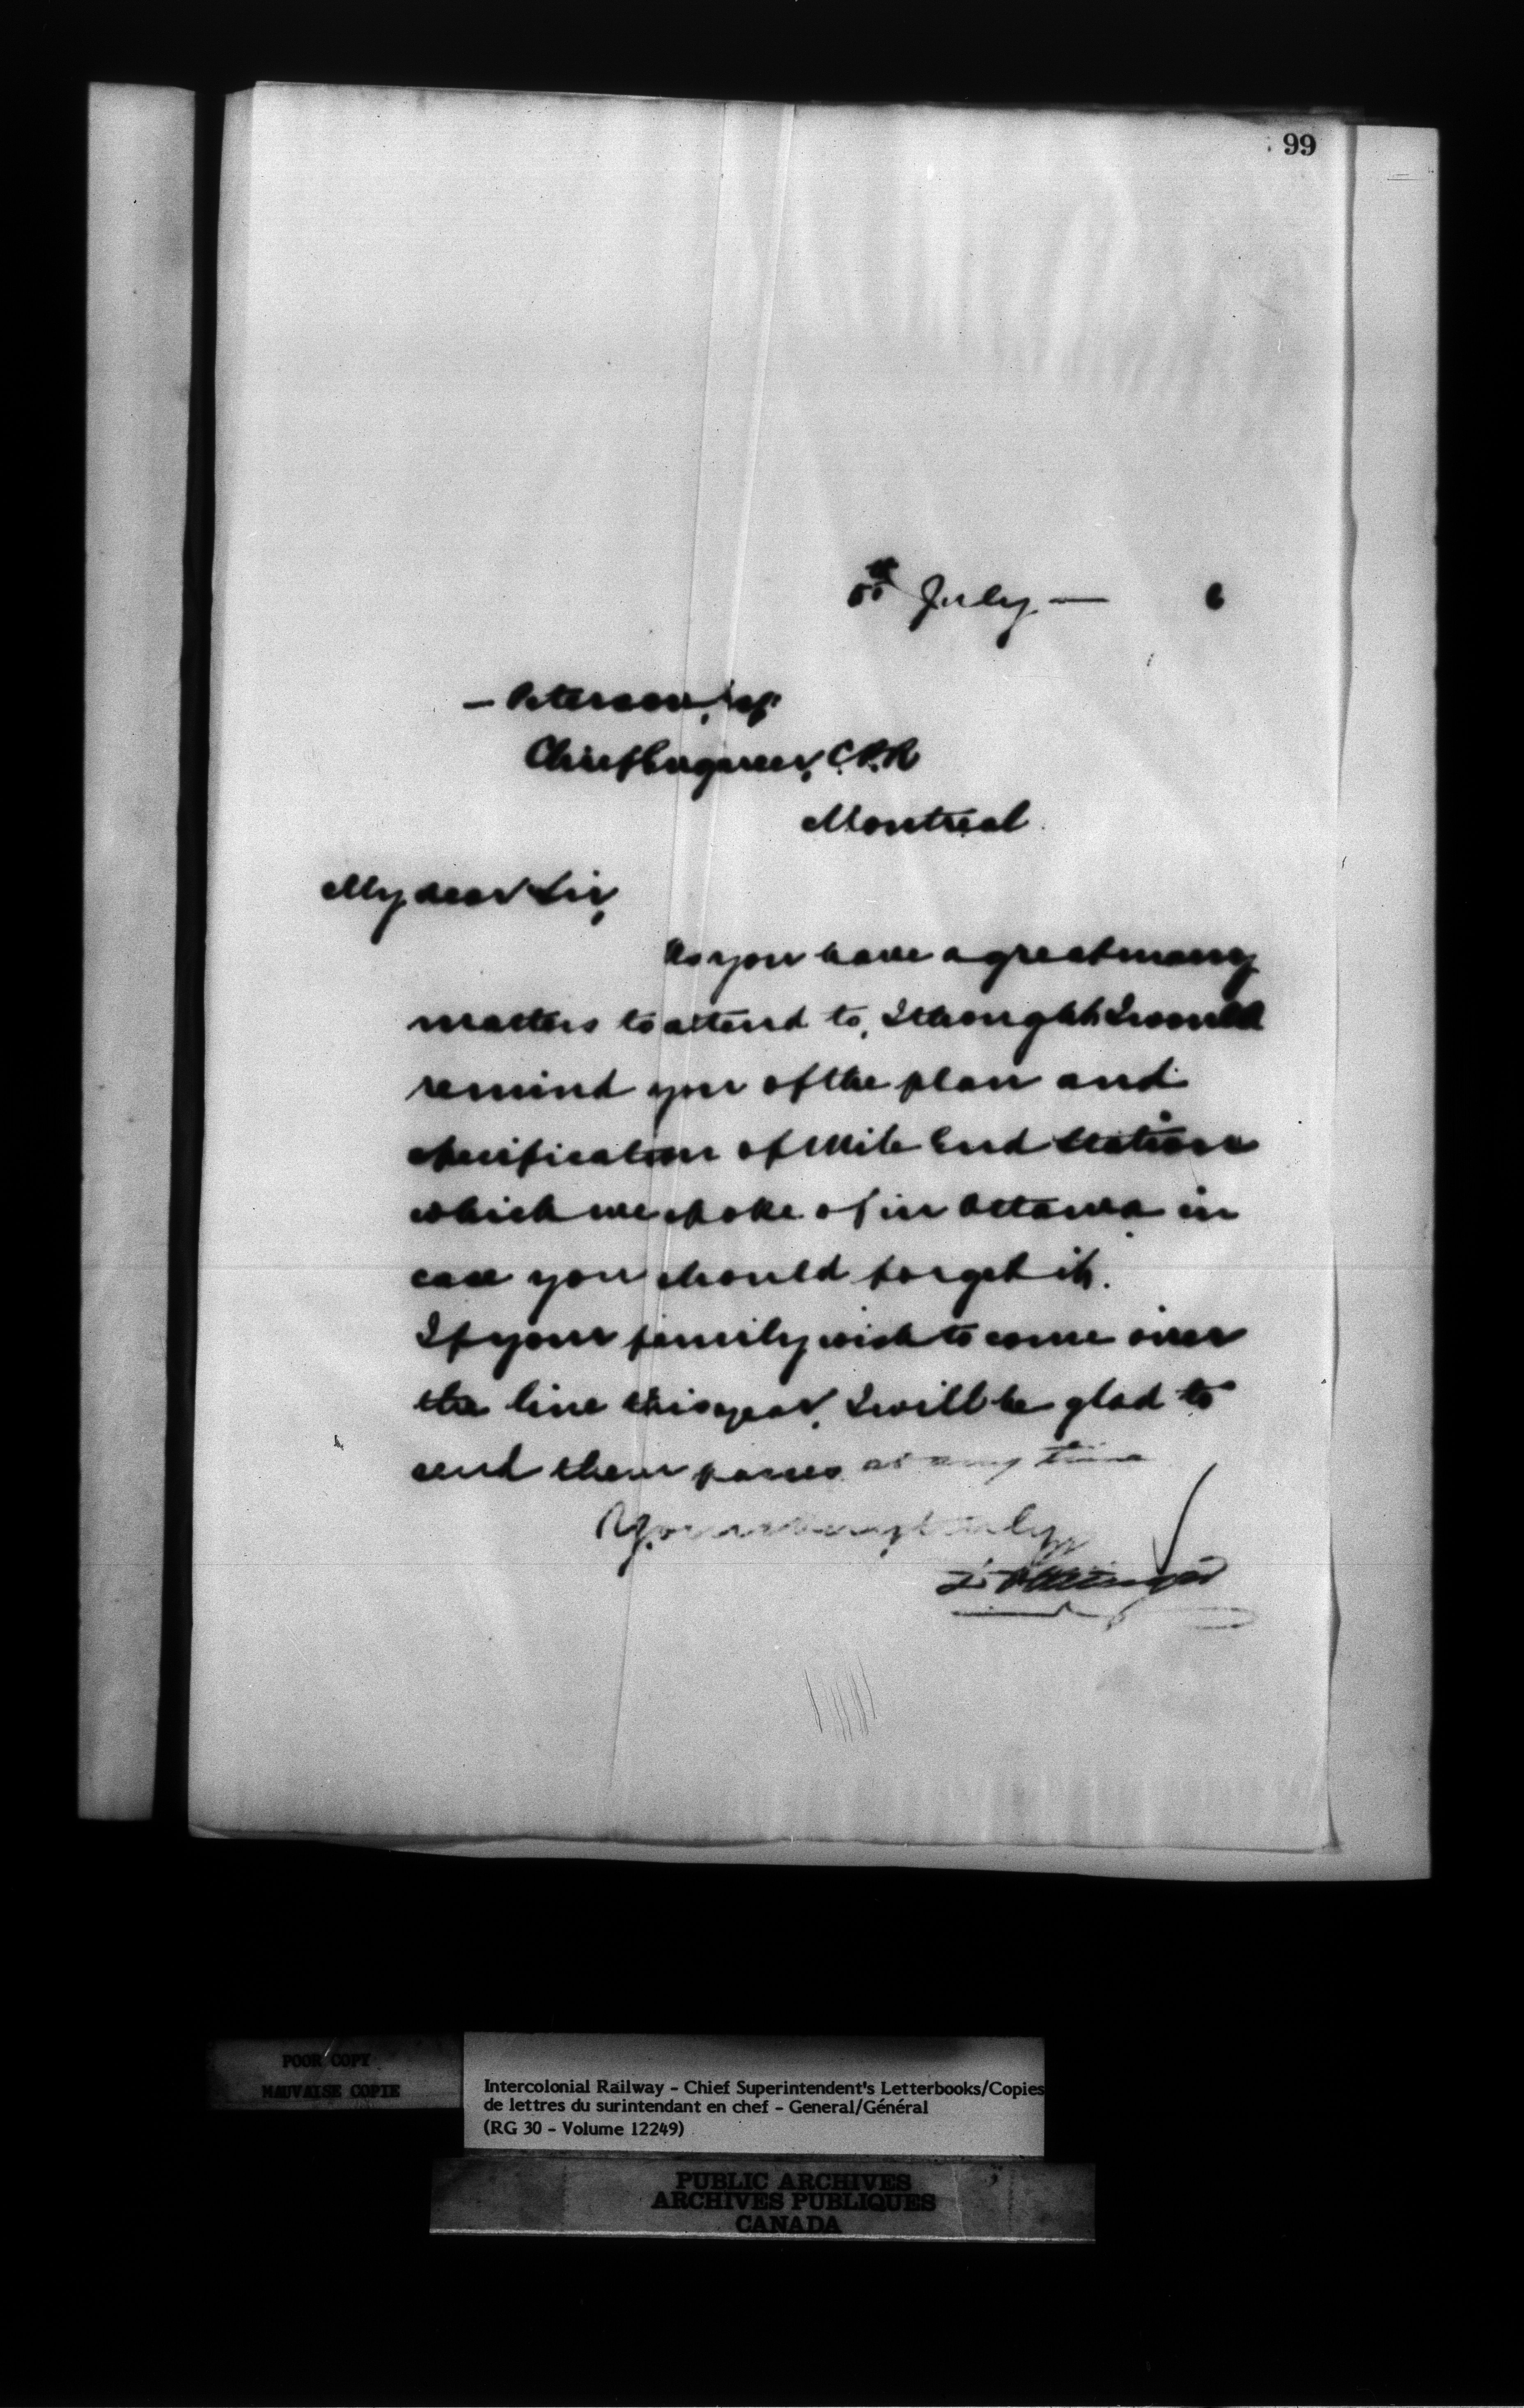 99
July — 6
— Peterson, Esq.
Chief Engineer, C.P.R
Montreal.
My dear Sir,
As you have a great many
matters to attend to, I thought I would
remind you of the plan and
specification of Mile End Station
which we spoke of in Ottawa in
case you should forget it.
If your family wish to come over
the line this year, I will be glad to
send them passes at any time
Yours very truly
D. Pottinger
POOR COPY
MAUVAISE COPIE
Intercolonial Railway - Chief Superintendent's Letterbooks/Copies
de lettres du surintendant en chef - General/Général
(RG 30 - Volume 12249)
PUBLIC ARCHIVES
ARCHIVES PUBLIQUES
CANADA